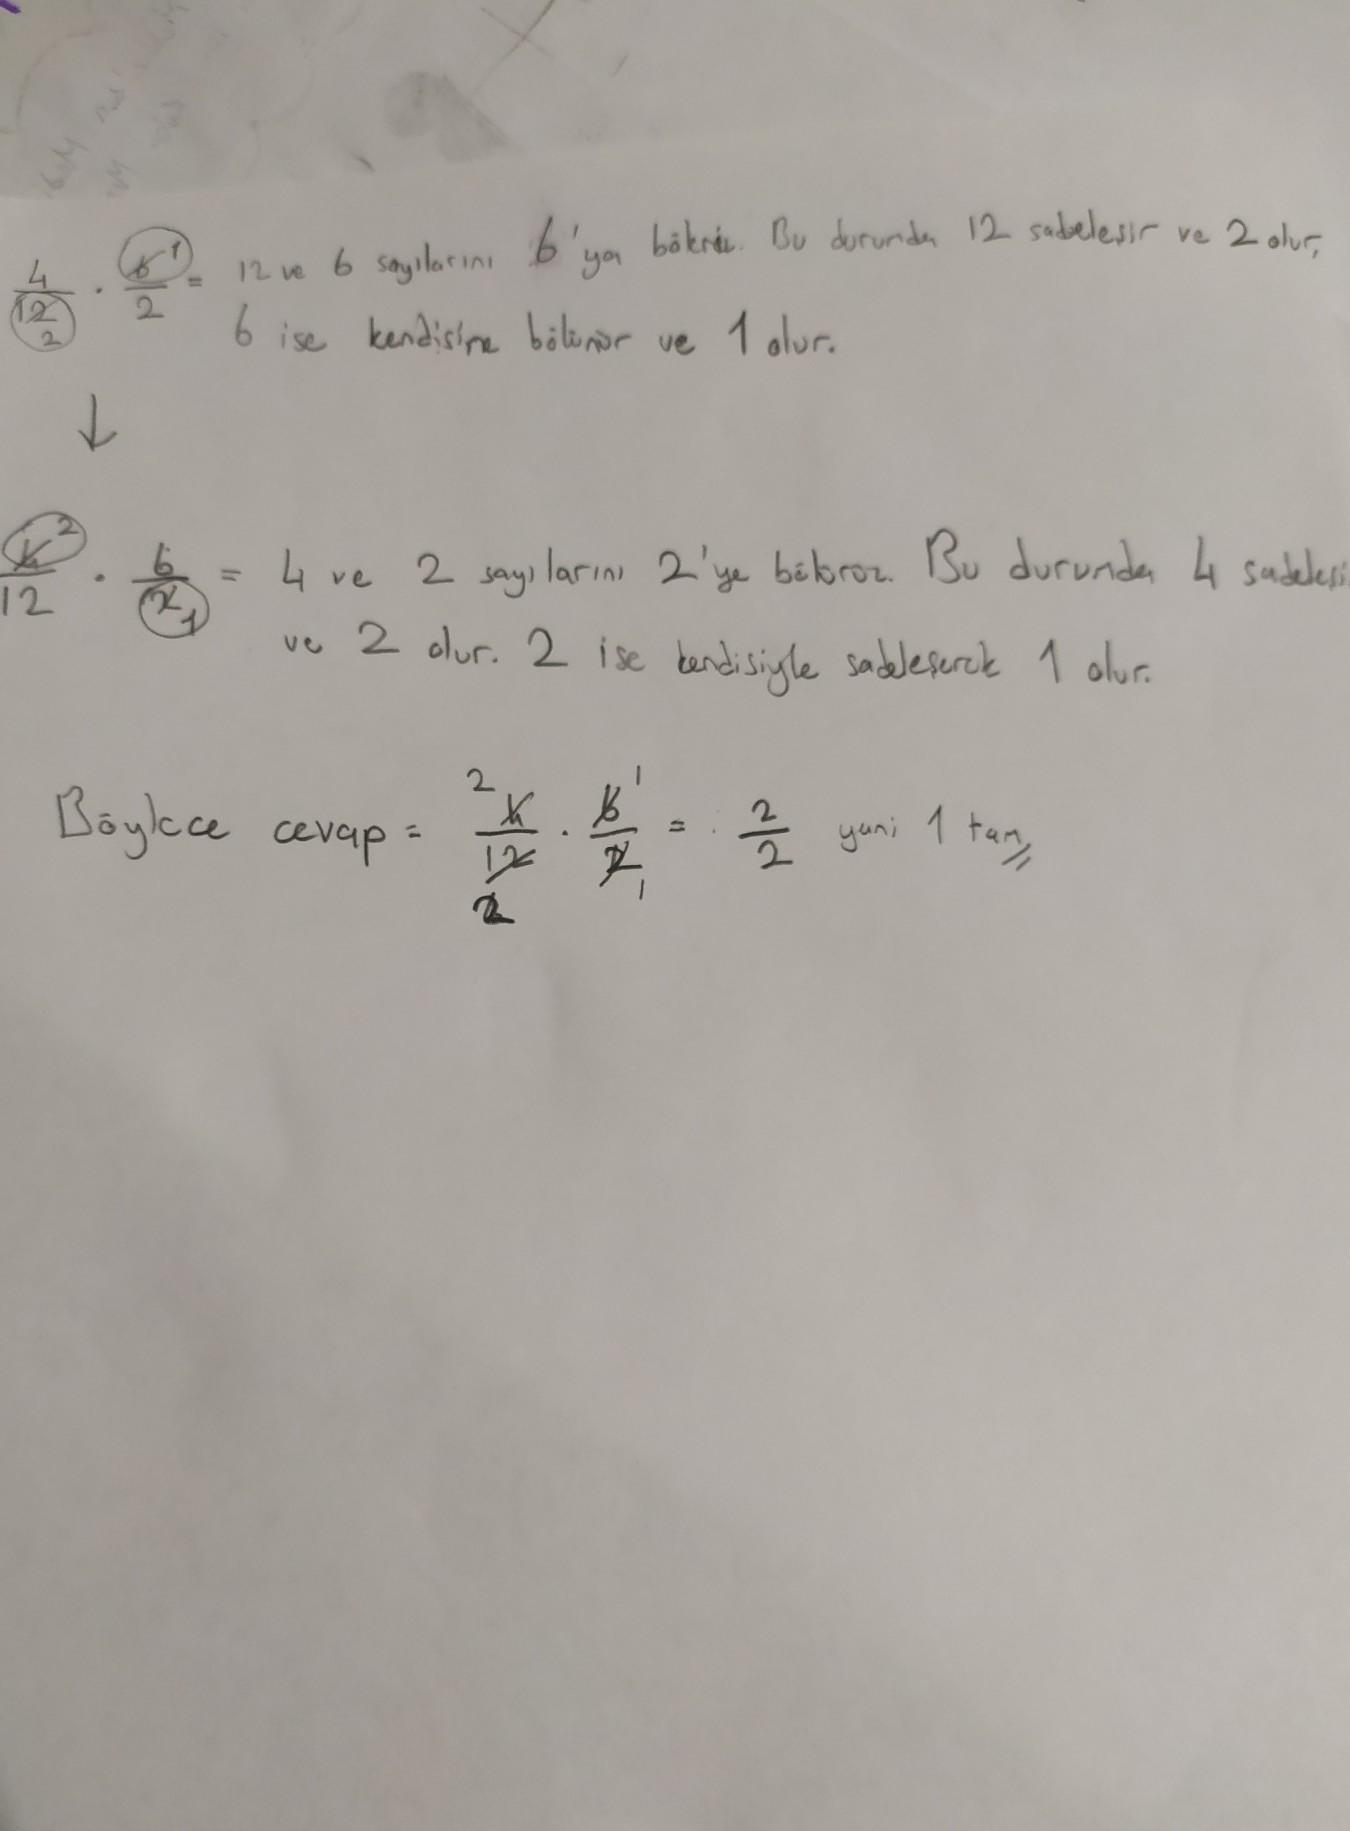 4/12 2 · 6 1/2 = 12 ve 6 sayılarını 6'ya böleriz. Bu durumda 12 sadeleşir ve 2 olur,
6 ise kendisine bölünür ve 1 olur.
↓
4 2/12 · 6/2 1 = 4 ve 2 sayılarını 2'ye böleriz. Bu durumda 4 sadeleşi
ve 2 olur. 2 ise kendisiyle sadeleşerek 1 olur.
Böylece cevap = 2 4/12 2 · 6 1/2 1 = 2/2 yani 1 tam